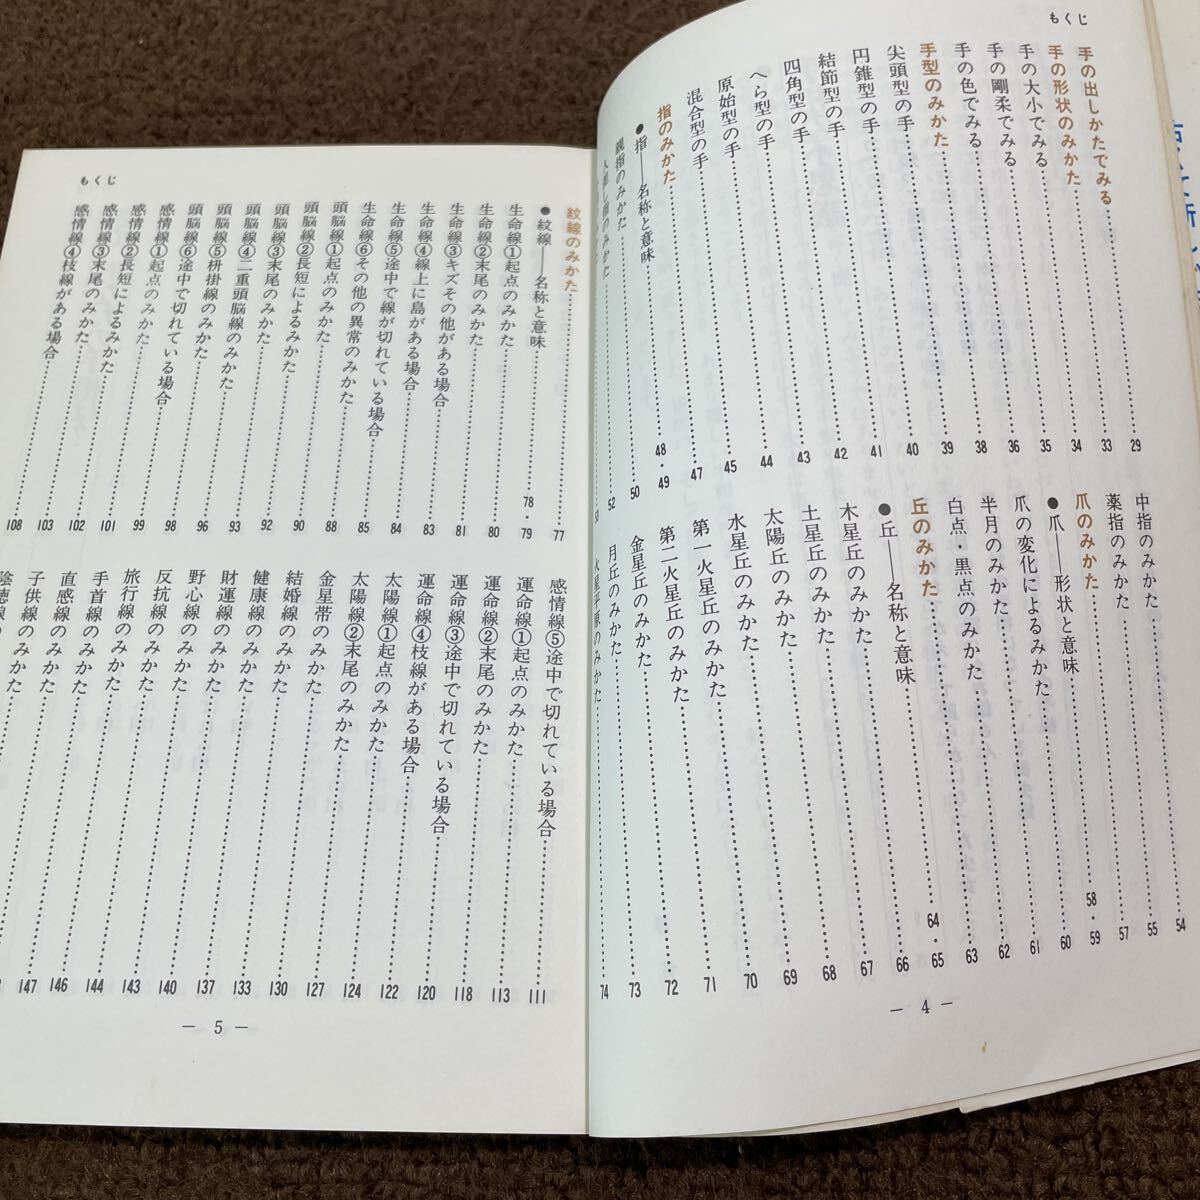 もくじ
手の出しかたでみる……29
手の形状のみかた……33
手の大小でみる……34
手の剛柔でみる……35
手の色でみる……36
手型のみかた……38
尖頭型の手……39
円錐型の手……40
結節型の手……41
四角型の手……42
へら型の手……43
原始型の手……44
混合型の手……45
指のみかた……47
●指――名称と意味……48・49
親指のみかた……50
人差し指のみかた……52
53
中指のみかた……54
薬指のみかた……55
爪のみかた……57
●爪――形状と意味……58・59
爪の変化によるみかた……60
半月のみかた……61
白点・黒点のみかた……62
丘のみかた……63
●丘――名称と意味……64・65
木星丘のみかた……66
土星丘のみかた……67
太陽丘のみかた……68
水星丘のみかた……69
第一火星丘のみかた……70
第二火星丘のみかた……71
金星丘のみかた……72
月丘のみかた……73
火星平原のみかた……74
― 4 ―
もくじ
紋線のみかた……77
●紋線――名称と意味……78・79
生命線①起点のみかた……80
生命線②末尾のみかた……81
生命線③キズその他がある場合……83
生命線④線上に島がある場合……84
生命線⑤途中で線が切れている場合……85
生命線⑥その他の異常のみかた……88
頭脳線①起点のみかた……90
頭脳線②長短によるみかた……92
頭脳線③末尾のみかた……93
頭脳線④二重頭脳線のみかた……96
頭脳線⑤枡掛線のみかた……98
頭脳線⑥途中で切れている場合……99
感情線①起点のみかた……101
感情線②長短によるみかた……102
感情線③末尾のみかた……103
感情線④枝線がある場合……108
感情線⑤途中で切れている場合……111
運命線①起点のみかた……113
運命線②末尾のみかた……118
運命線③途中で切れている場合……120
運命線④枝線がある場合……122
太陽線①起点のみかた……124
太陽線②末尾のみかた……127
金星帯のみかた……130
結婚線のみかた……133
健康線のみかた……137
財運線のみかた……140
野心線のみかた……143
反抗線のみかた……144
旅行線のみかた……146
手首線のみかた……147
直感線のみかた……
子供線のみかた……
陰徳線のみかた……
― 5 ―